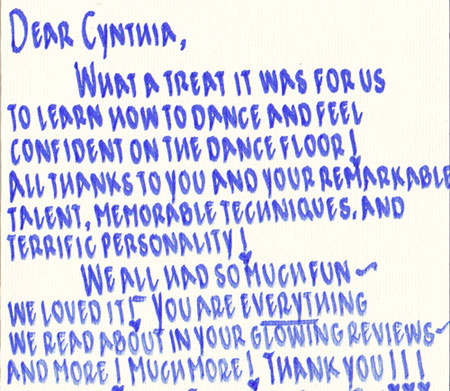 DEAR CYNTHIA,
WHAT A TREAT IT WAS FOR US
TO LEARN HOW TO DANCE AND FEEL
CONFIDENT ON THE DANCE FLOOR!
ALL THANKS TO YOU AND YOUR REMARKABLE
TALENT, MEMORABLE TECHNIQUES, AND
TERRIFIC PERSONALITY!
WE ALL HAD SO MUCH FUN ~
WE LOVED IT! YOU ARE EVERYTHING
WE READ ABOUT IN YOUR GLOWING REVIEWS ~
AND MORE! MUCH MORE! THANK YOU!!!